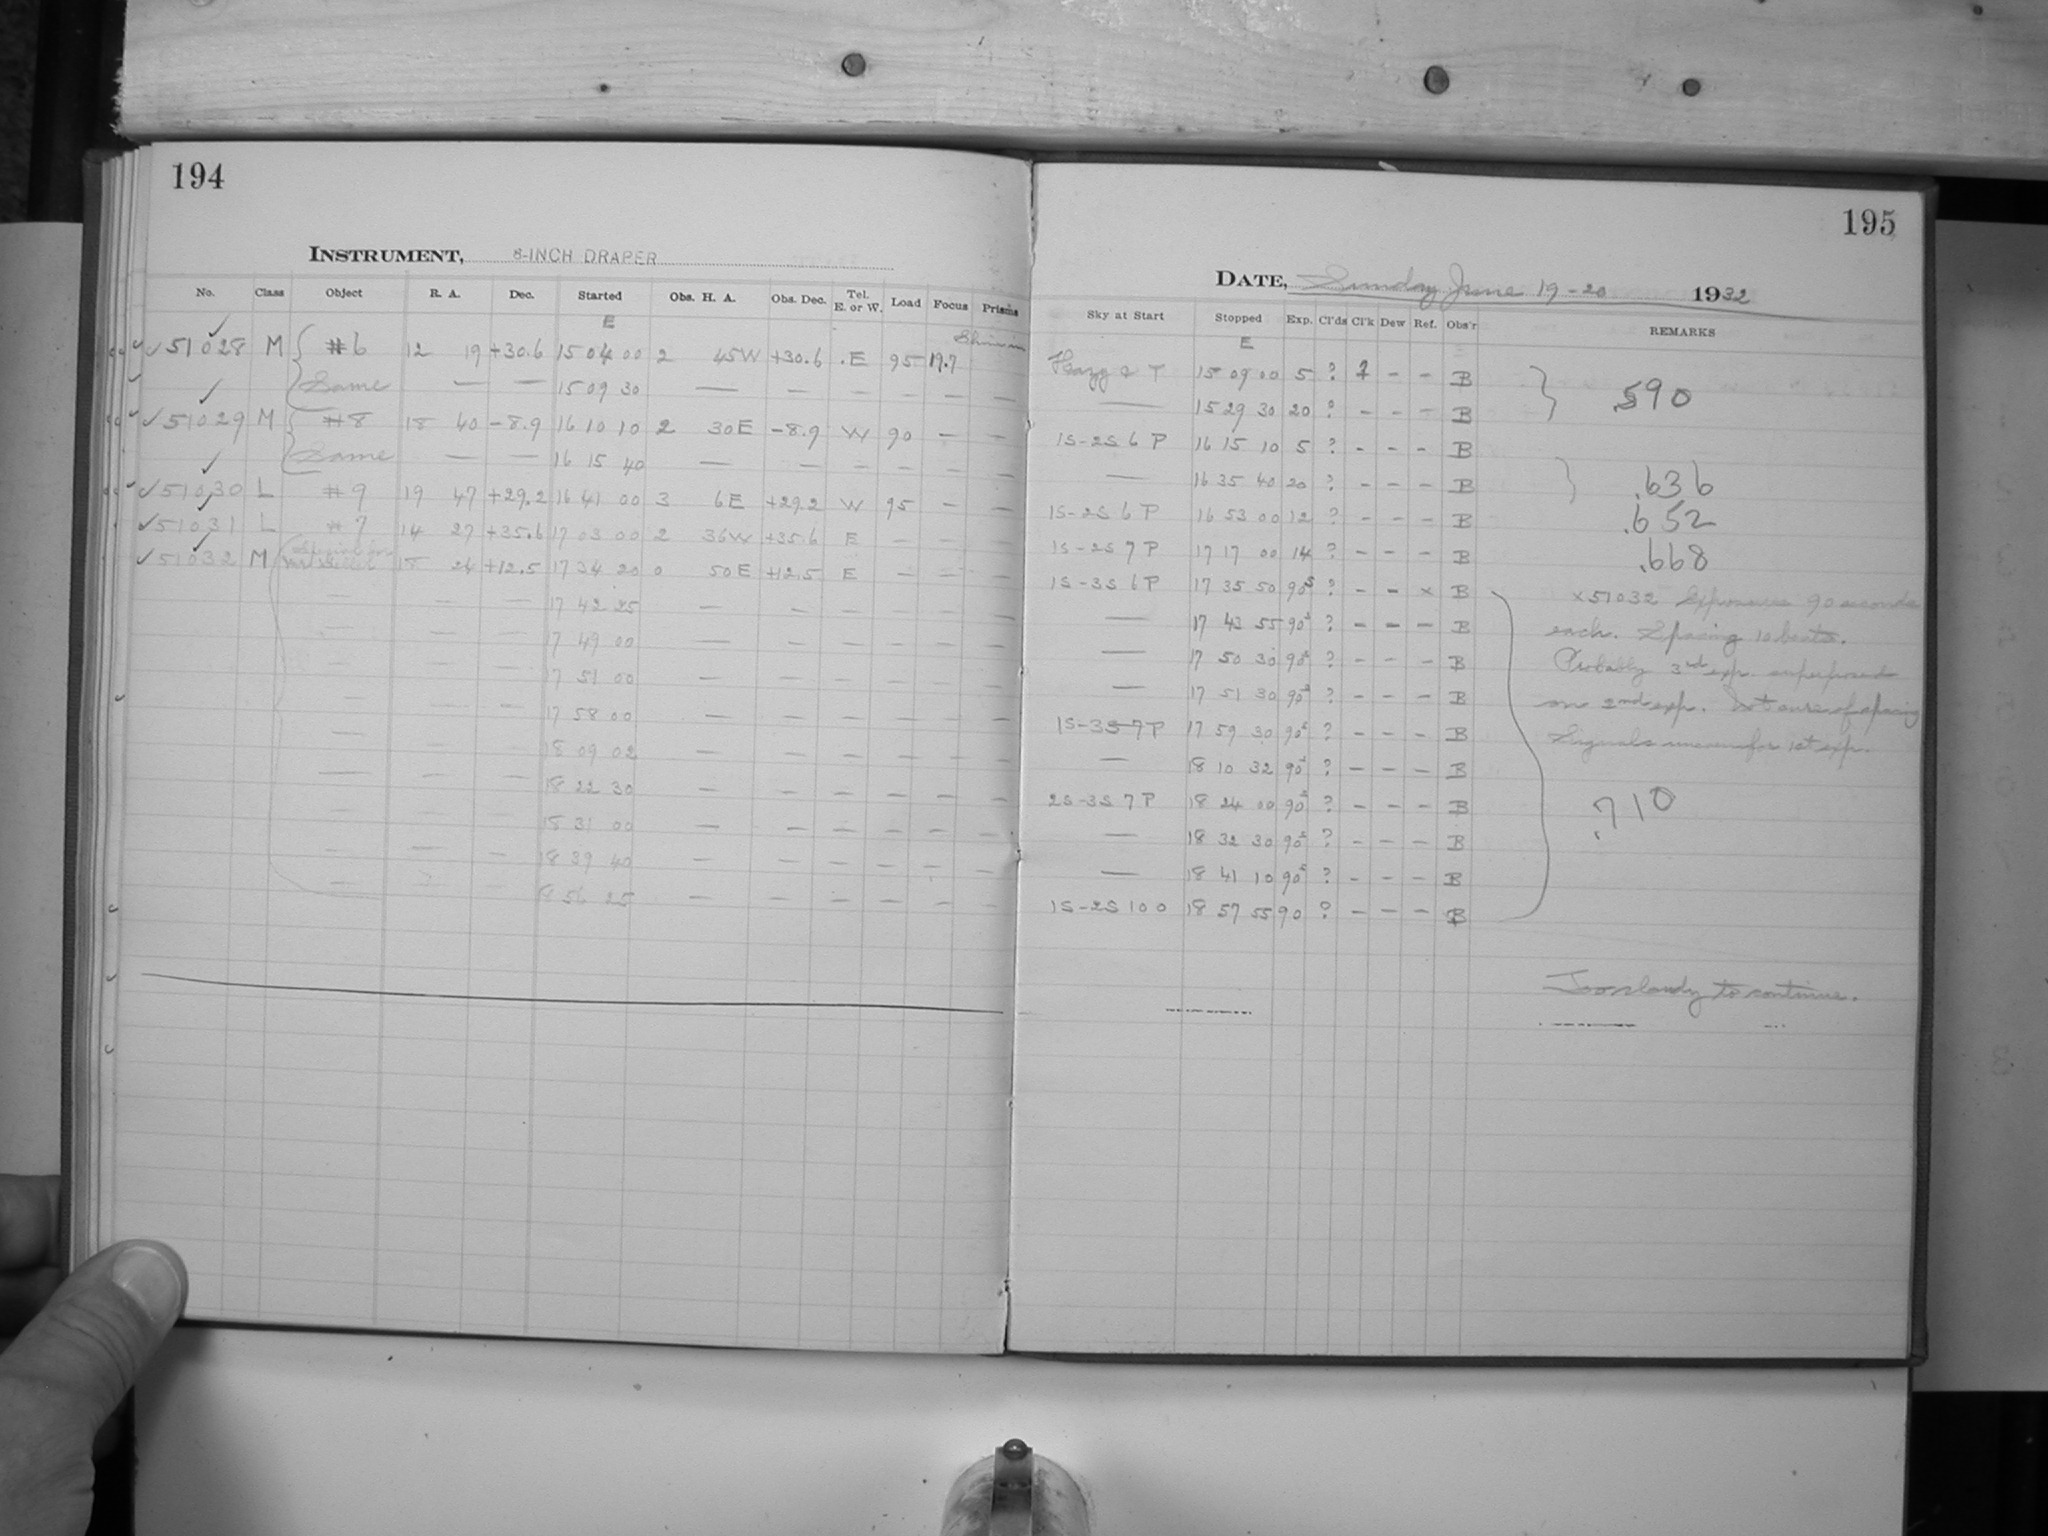 194
INSTRUMENT, 8-INCH DRAPER
No. Class Object R. A. Dec. Started Obs. H. A. Obs. Dec. Tel. E. or W. Load Focus Prisms
E
51028 M #6 12 19 +30.6 15 04 00 2 45W +30.6 E 95 19.7
Same — — 15 09 30 — — — — — —
51029 M #8 18 40 -8.9 16 10 10 2 30E -8.9 W 90 — —
Same — — 16 15 40 — — — — — —
51030 L #9 19 47 +29.2 16 41 00 3 6E +29.2 W 95 — —
51031 L #7 14 27 +35.6 17 03 00 2 36W +35.6 E — — —
51032 M 18 24 +12.5 17 34 20 0 50E +12.5 E — — —
— — — 17 42 25 — — — — — —
— — — 17 49 00 — — — — — —
— — — 17 51 00 — — — — — —
— — — 17 58 00 — — — — — —
— — — 18 09 02 — — — — — —
— — — 18 22 30 — — — — — —
— — — 18 31 00 — — — — — —
— — — 18 39 40 — — — — — —
— — — 18 56 25 — — — — — —
195
DATE, Sunday June 19-20 1932
Sky at Start Stopped Exp. Cl'ds Cl'k Dew Ref. Obs'r REMARKS
E
Hazy & T 15 09 00 5 ? ? - - B
— 15 29 30 20 ? - - - B .590
1S-2S 6 P 16 15 10 5 ? - - - B
— 16 35 40 20 ? - - - B .636
1S-2S 6 P 16 53 00 12 ? - - - B .652
1S-2S 7 P 17 17 00 14 ? - - - B .668
1S-3S 6 P 17 35 50 90s ? - - x B x51032 Exposures 90 seconds
— 17 43 55 90s ? - - - B each. Spacing 10 beats.
— 17 50 30 90s ? - - - B Probably 3rd exp. superposed
— 17 51 30 90s ? - - - B on 2nd exp. Not sure of spacing
1S-3S 7 P 17 59 30 90s ? - - - B Signals uneven for 1st exp.
— 18 10 32 90s ? - - - B
2S-3S 7 P 18 24 00 90s ? - - - B .710
— 18 32 30 90s ? - - - B
— 18 41 10 90s ? - - - B
1S-2S 10 0 18 57 55 90 ? - - - B
Too cloudy to continue.